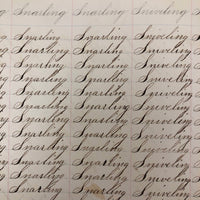 Snarling Snarling Sniveling
Snarling Snarling Sniveling
Snarling Snarling Sniveling
Snarling Snarling Sniveling
Snarling Snarling Sniveling
Snarling Snarling Sniveling
Snarling Snarling Sniveling
Snarling Snarling Sniveling
Snarling Snarling Sniveling
Snarling Snarling Sniveling
Snarling Snarling Sniveling
Snarling Snarling Sniveling
Snarling Snarling Sniveling